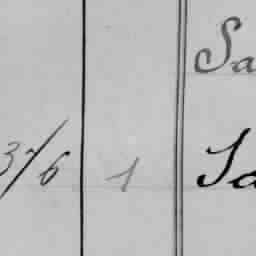 Sa
37/6 1 Sa